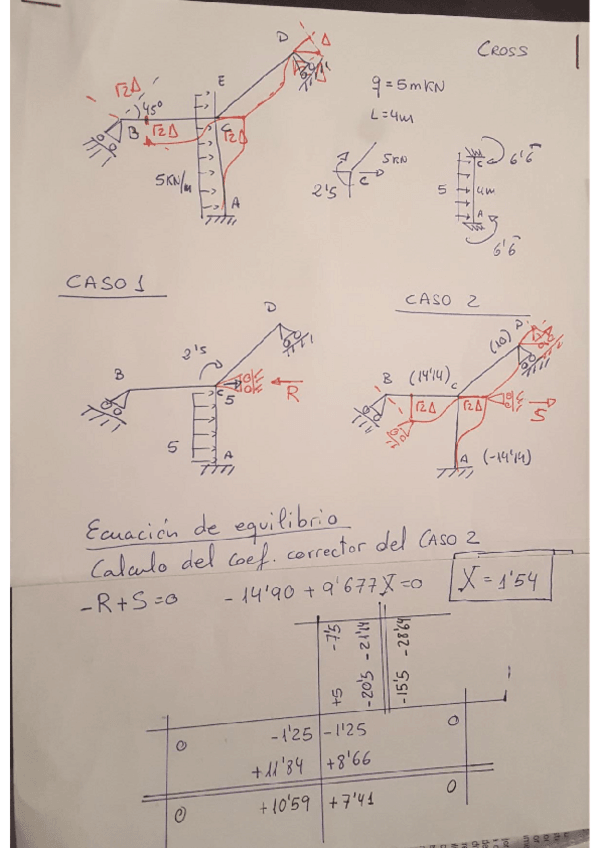 CROSS
D
Δ
E
√2Δ
45°
B
√2Δ
C
√2Δ
5KN/m
A
q = 5mKN
L = 4m
5KN
2'5
C
C
6'6
5
4m
A
6'6
CASO 1
D
2'5
B
C
5
R
5
A
CASO 2
D
(10)
B
(14'14)
C
√2Δ
√2Δ
S
A
(-14'14)
Ecuación de equilibrio
Calculo del coef. corrector del CASO 2
-R + S = 0 -14'90 + 9'677X = 0 X = 1'54
-7'5 -21'14 -28'64
+5 -20'5 -15'5
0 -1'25 -1'25 0
+11'84 +8'66
0 +10'59 +7'41 0